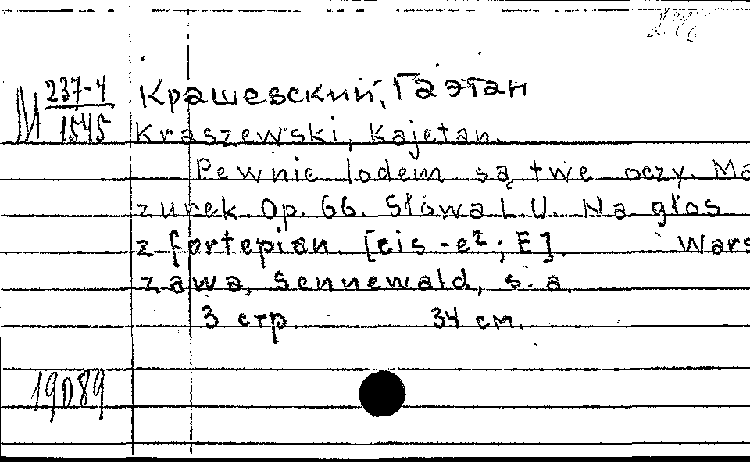 М 237-4
1545
Крашевский, Гаэтан
Kraszewski, Kajetan.
Pewnie lodem są twe oczy. Ma-
zurek. Op. 66. Słowa L.U. Na głos
z fortepian. [cis-e²; E]. Wars-
zawa, Sennewald, s.a.
3 стр. 34 см.
19089